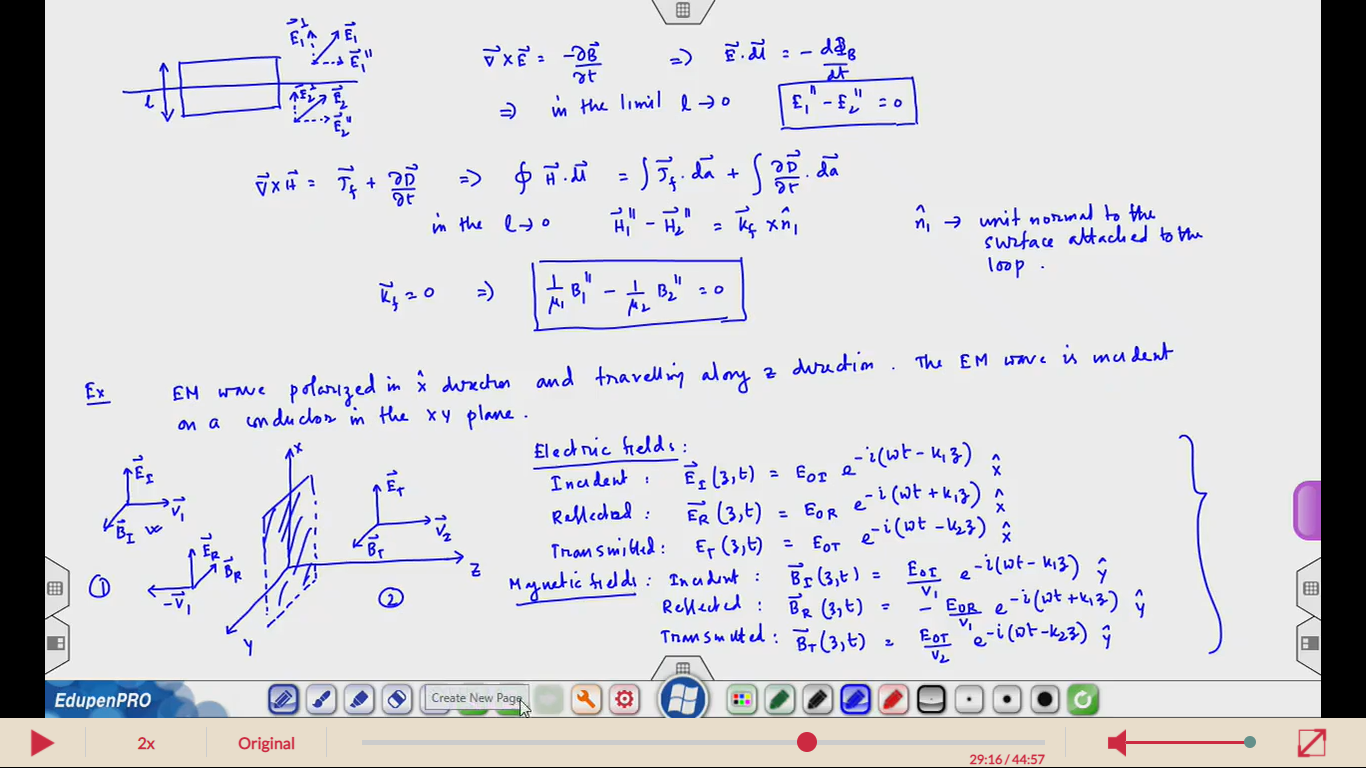 E⃗₁^⊥ E⃗₁ E⃗₁^∥
l E⃗₂^⊥ E⃗₂ E⃗₂^∥
∇⃗×E⃗ = -∂B⃗/∂t ⇒ E⃗.dl⃗ = - dΦ_B/dt
⇒ in the limit l → 0 E₁^∥ - E₂^∥ = 0
∇⃗×H⃗ = J⃗_f + ∂D⃗/∂t ⇒ ∮ H⃗.dl⃗ = ∫ J⃗_f.da⃗ + ∫ ∂D⃗/∂t . da⃗
in the l → 0 H⃗₁^∥ - H⃗₂^∥ = k⃗_f × n̂₁ n̂₁ → unit normal to the
surface attached to the
loop .
k⃗_f = 0 ⇒ 1/μ₁ B₁^∥ - 1/μ₂ B₂^∥ = 0
Ex EM wave polarized in x̂ direction and travelling along z direction . The EM wave is incident
on a conductor in the xy plane .
E⃗_I V⃗₁ B⃗_I w
E⃗_R B⃗_R -V⃗₁
①
X Y Z
E⃗_T V⃗₂ B⃗_T
②
Electric fields :
Incident : E⃗_I (z,t) = E_OI e^{-i(ωt - k₁z)} x̂
Reflected : E⃗_R (z,t) = E_OR e^{-i(ωt + k₁z)} x̂
Transmitted : E_T (z,t) = E_OT e^{-i(ωt - k₂z)} x̂
Magnetic fields : Incident : B⃗_I (z,t) = E_OI/V₁ e^{-i(ωt - k₁z)} ŷ
Reflected : B⃗_R (z,t) = - E_OR/V₁ e^{-i(ωt + k₁z)} ŷ
Transmitted : B⃗_T (z,t) = E_OT/V₂ e^{-i(ωt - k₂z)} ŷ
EdupenPRO
Create New Page
2x
Original
29:16 / 44:57